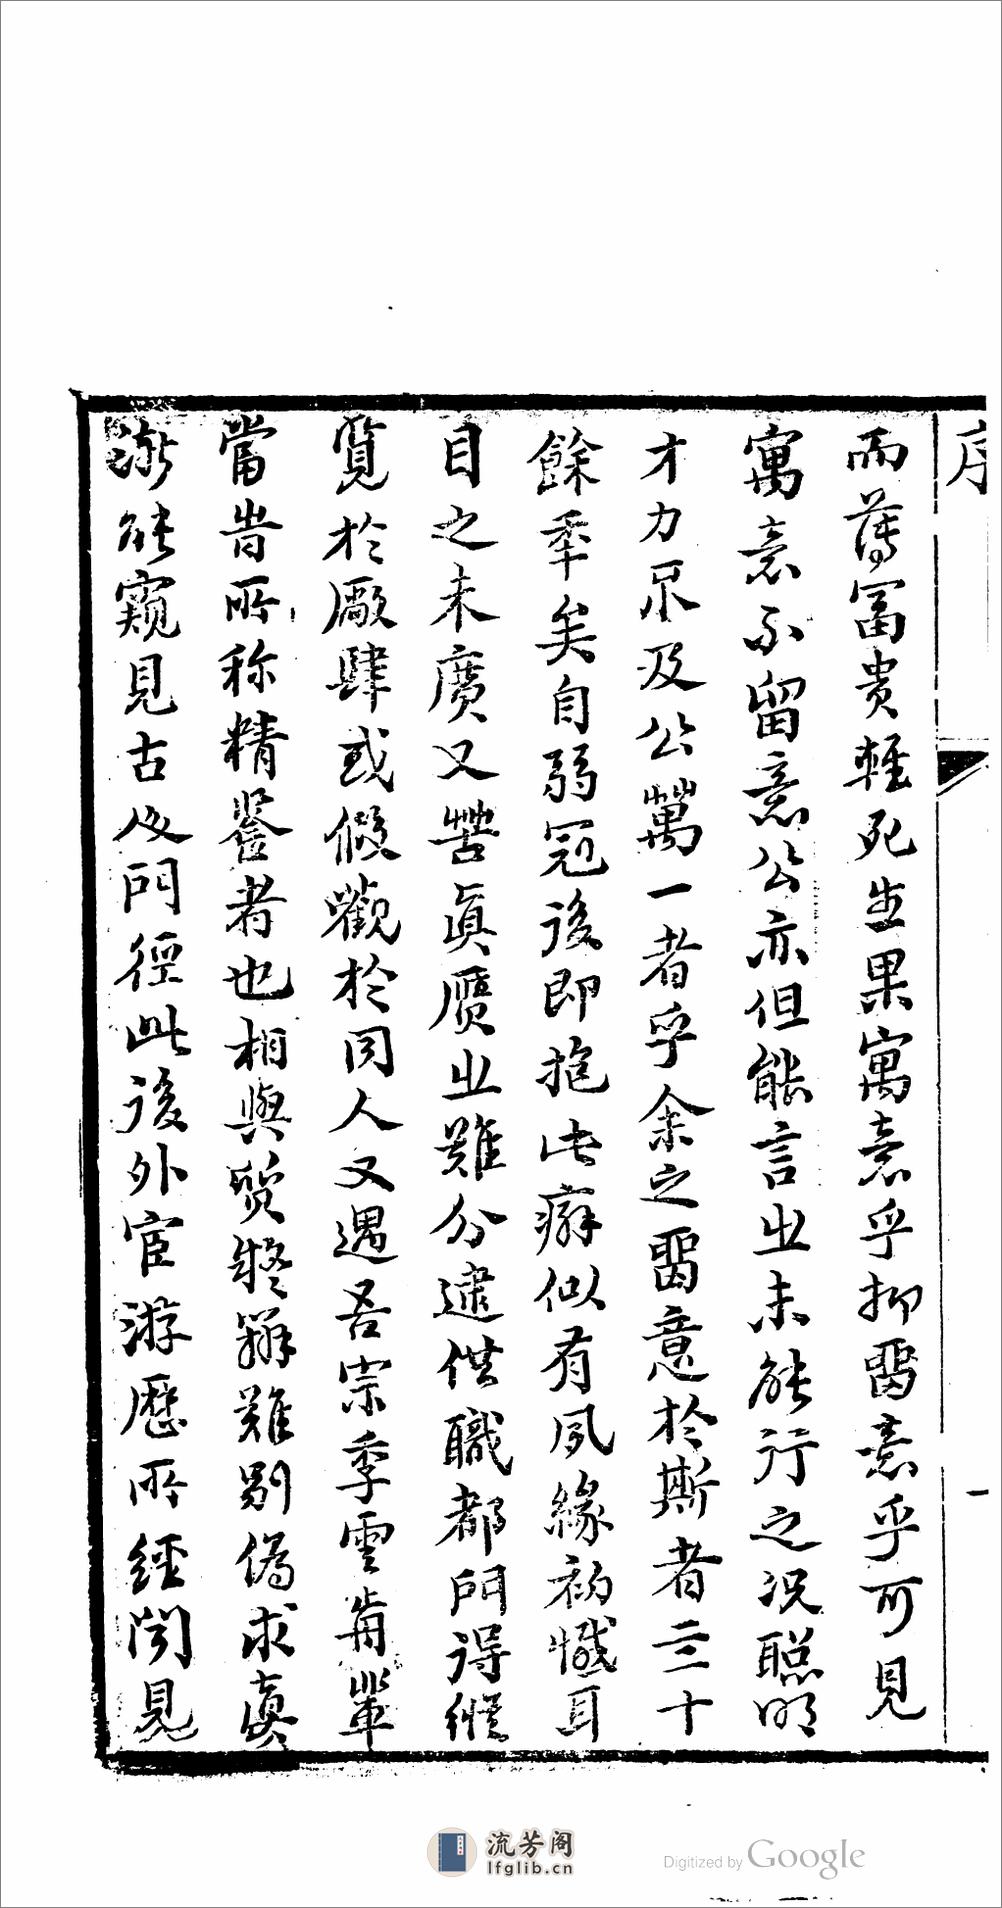 序
一
而薄富貴輕死生果寓意乎抑畱意乎可見
寓意不留意公亦但能言㞢未能行之況聡明
才力不及公萬一者乎余之畱意於斯者三十
餘年矣自弱冠後即抱此癖似有夙緣初慨耳
目之未廣又苦真贋㞢難分逮供職都門得縱
覽於厰肆或假觀於同人又遇吾宗季雲前輩
當昔所称精鑒者也相與質疑辨難別偽求真
漸能窺見古人門徑此後外宦游歷所經聞見
流芳阁
lfglib.cn
Digitized by Google